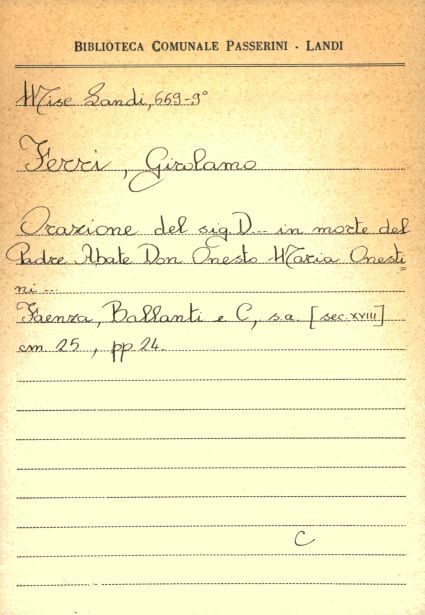 BIBLIOTECA COMUNALE PASSERINI - LANDI
Misc Landi, 659-9°
Ferri, Girolamo
Orazione del sig. D... in morte del
Padre Abate Don Onesto Maria Onesti=
ni ...
Faenza, Ballanti e C, s.a. [sec. XVIII]
cm. 25, pp 24.
C